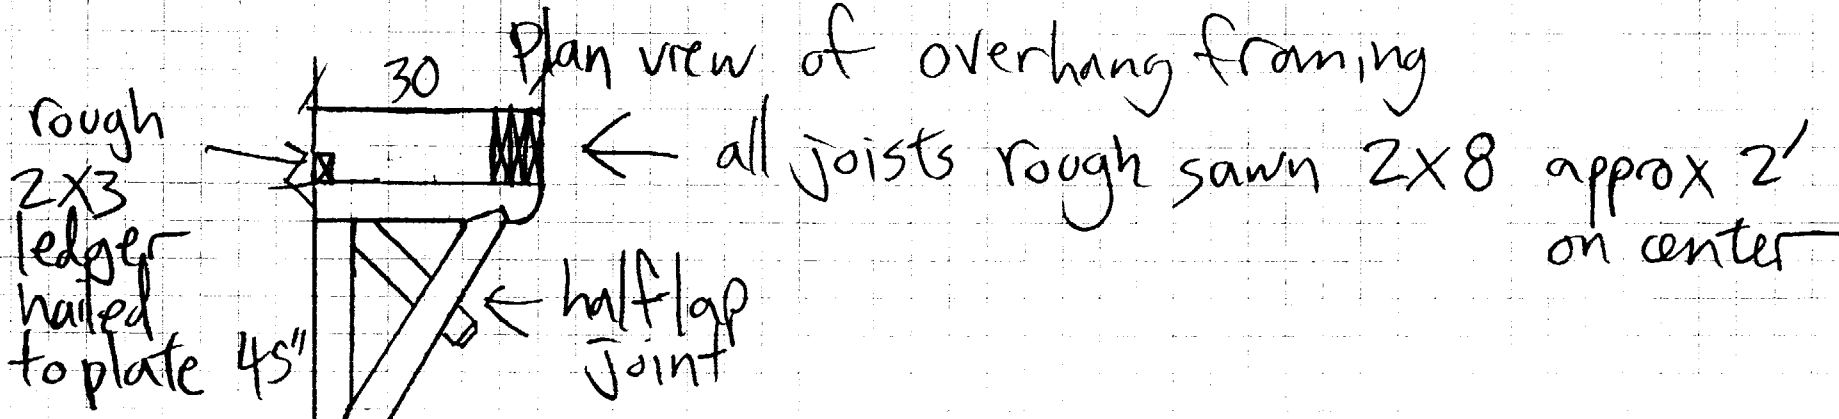 Plan view of overhang framing
30
rough
2X3
ledger
nailed
to plate
all joists rough sawn 2X8 approx 2'
on center
half lap
joint
45"